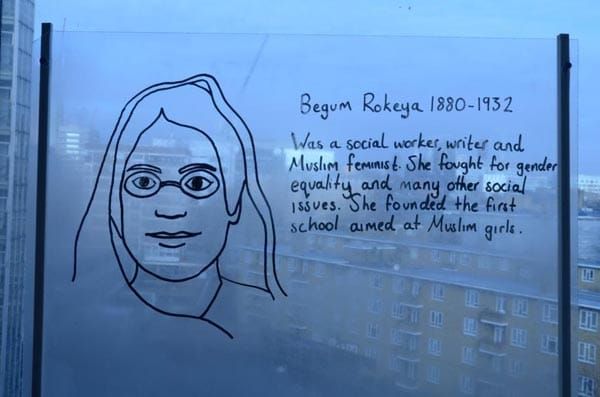 Begum Rokeya 1880-1932
Was a social worker, writer and
Muslim feminist. She fought for gender
equality and many other social
issues. She founded the first
school aimed at Muslim girls.